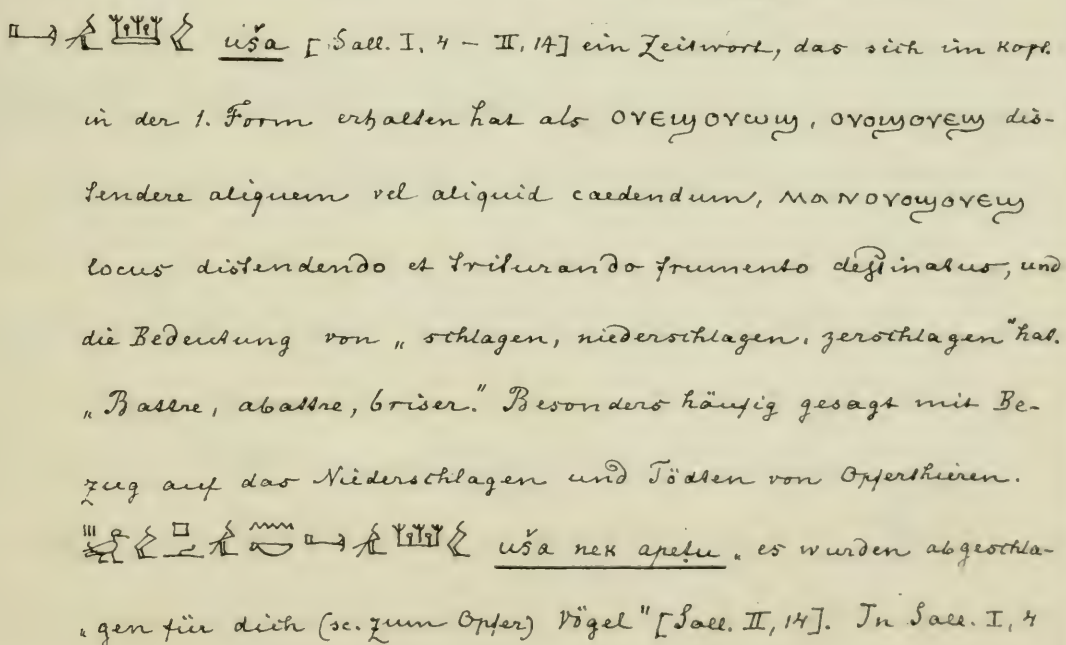 uša [Sall. I, 4 – II, 14] ein Zeitwort, das sich im Kopt.
in der 1. Form erhalten hat als ⲟⲩⲉϣⲟⲩⲱϣ, ⲟⲩⲟϣⲟⲩⲉϣ dis-
tendere aliquem vel aliquid caedendum, ⲙⲁⲛⲟⲩⲟϣⲟⲩⲉϣ
locus distendendo et triturando frumento destinatus, und
die Bedeutung von „schlagen, niederschlagen, zerschlagen" hat.
„Battre, abattre, briser." Besonders häufig gesagt mit Be-
zug auf das Niederschlagen und Tödten von Opferthieren.
uša nek apetu „es wurden abgeschla-
„gen für dich (sc. zum Opfer) Vögel" [Sall. II, 14]. In Sall. I, 4